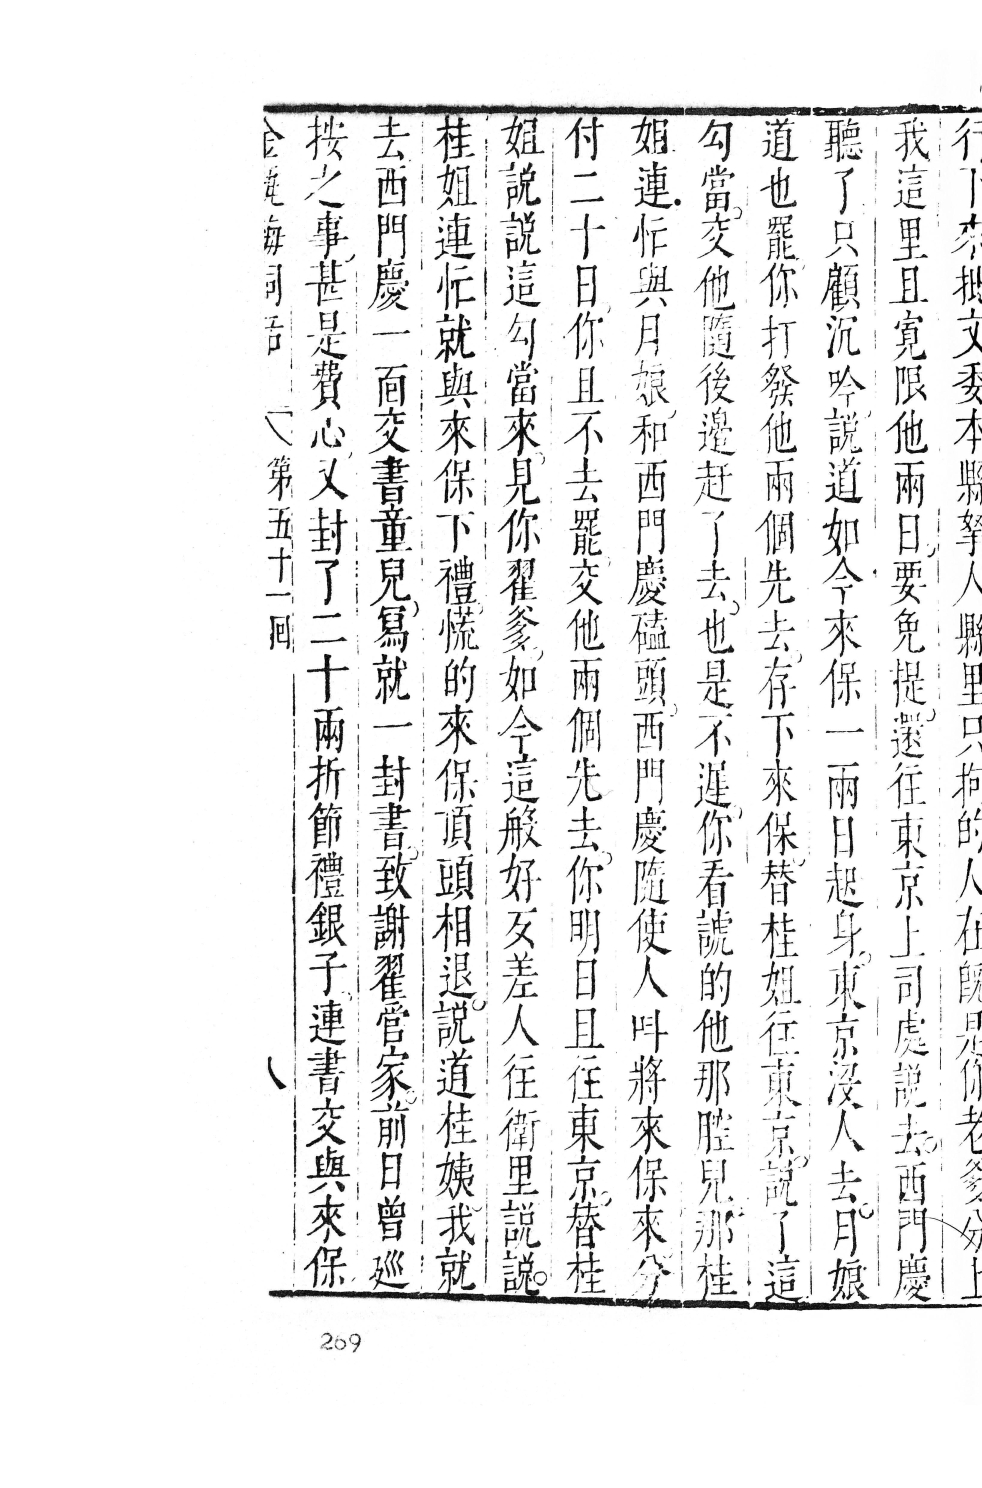 行下來批文委本縣拏人縣里只拘的人在旣是你老爹分上
我這里且寬限他兩日要免提還往東京上司處說去西門慶
聽了只顧沉吟說道如今來保一兩日起身東京沒人去月娘
道也罷你打發他兩個先去存下來保替桂姐往東京說了這
勾當交他隨後邊赶了去也是不遲你看諕的他那腔兒那桂
姐連忙與月娘和西門慶磕頭西門慶隨使人叫將來保來分
付二十日你且不去罷交他兩個先去你明日且往東京替桂
姐說說這勾當來見你翟爹如今這般好歹差人往衛里說說
桂姐連忙就與來保下禮慌的來保頂頭相退說道桂姨我就
去西門慶一面交書童兒寫就一封書致謝翟管家前日曾廵
按之事甚是費心又封了二十兩折節禮銀子連書交與來保
金瓶梅詞話 第五十一回 八
269